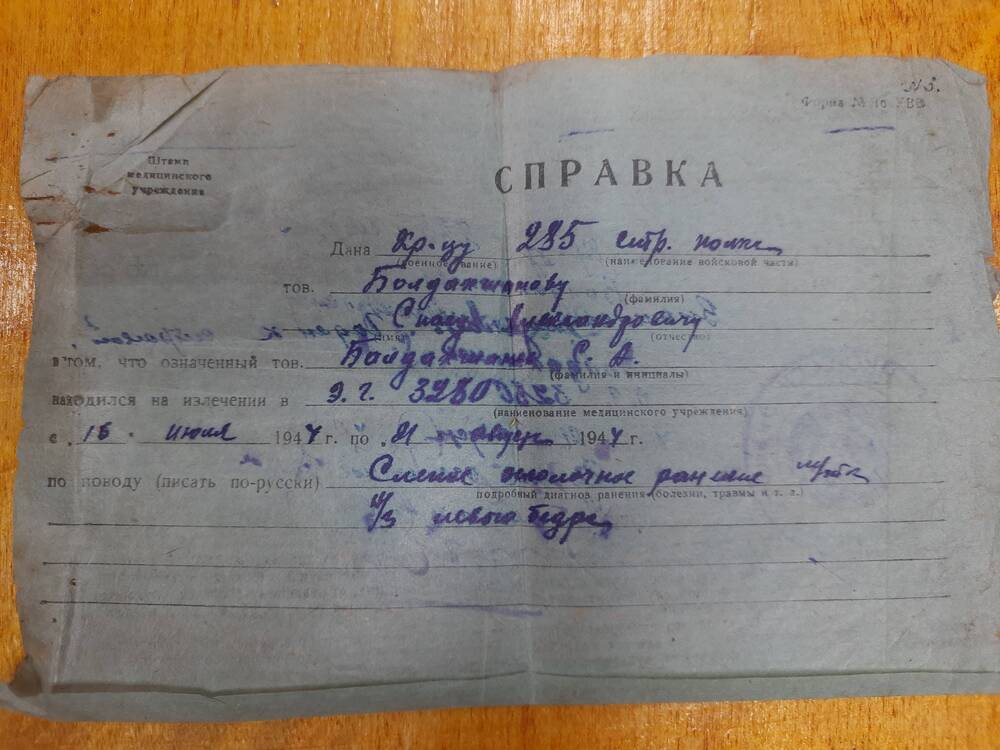 Форма № 16 УВВ
Штамп
медицинского
учреждения
СПРАВКА
Дана Кр-цу 285 стр. полка
(военное звание) (наименование войсковой части)
тов.
(фамилия)
Александровичу
(имя) (отчество)
в том, что означенный тов. С. А.
(фамилия и инициалы)
находился на излечении в Э. Г. 3280
(наименование медицинского учреждения)
с „15 июля 1944 г. по „21 август 1944 г.
по поводу (писать по-русски) Слепое осколочное ранение
подробный диагноз ранения (болезни, травмы и т. д.)
н/з левого бедра